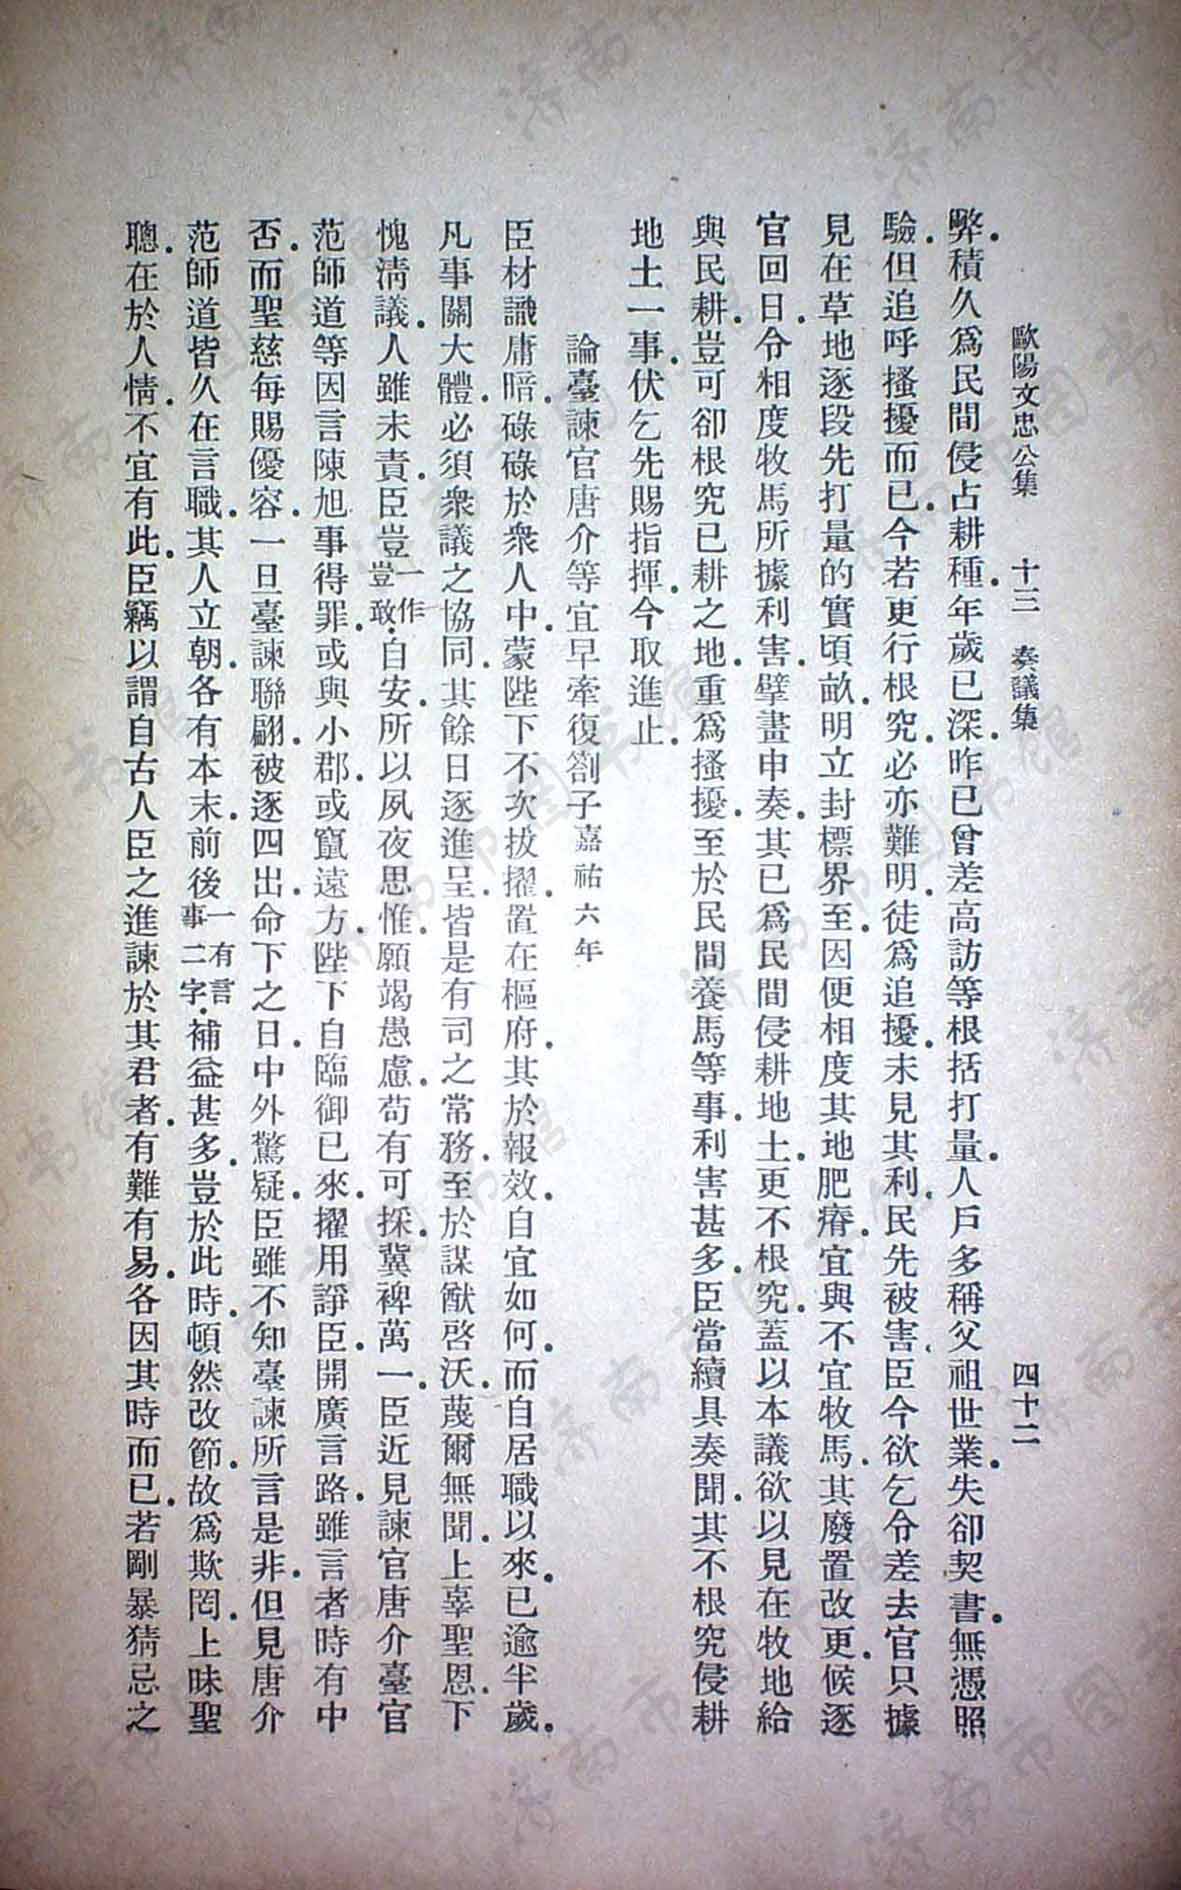 歐陽文忠公集　十三　奏議集　四十二
弊．積久爲民間侵占耕種．年歲已深．昨已曾差高訪等根括打量．人戶多稱父祖世業．失卻契書．無憑照
驗．但追呼搔擾而已．今若更行根究．必亦難明．徒爲追擾．未見其利．民先被害．臣今欲乞令差去官只據
見在草地逐段先打量的實頃畝．明立封標界至．因便相度其地肥瘠．宜與不宜牧馬．其廢置改更．候逐
官回日．令相度牧馬所據利害．擘畫申奏．其已爲民間侵耕地土．更不根究．蓋以本議欲以見在牧地給
與民耕．豈可卻根究已耕之地．重爲搔擾．至於民間養馬等事．利害甚多．臣當續具奏聞．其不根究侵耕
地土一事．伏乞先賜指揮．今取進止．
論臺諫官唐介等宜早牽復劄子嘉祐六年
臣材識庸暗．碌碌於衆人中．蒙陛下不次拔擢．置在樞府．其於報效．自宜如何．而自居職以來．已逾半歲．
凡事關大體．必須衆議之協同．其餘日逐進呈．皆是有司之常務．至於謀猷啓沃．蔑爾無聞．上辜聖恩．下
愧淸議．人雖未責．臣豈一作豈敢．自安．所以夙夜思惟．願竭愚慮．苟有可採．冀裨萬一．臣近見諫官唐介臺官
范師道等因言陳旭事得罪．或與小郡．或竄遠方．陛下自臨御已來．擢用諍臣．開廣言路．雖言者時有中
否．而聖慈每賜優容．一旦臺諫聯翩．被逐四出．命下之日．中外驚疑．臣雖不知臺諫所言是非．但見唐介
范師道皆久在言職．其人立朝．各有本末．前後一有言事二字．補益甚多．豈於此時．頓然改節．故爲欺罔．上昧聖
聰．在於人情．不宜有此．臣竊以謂自古人臣之進諫於其君者．有難有易．各因其時而已．若剛暴猜忌之